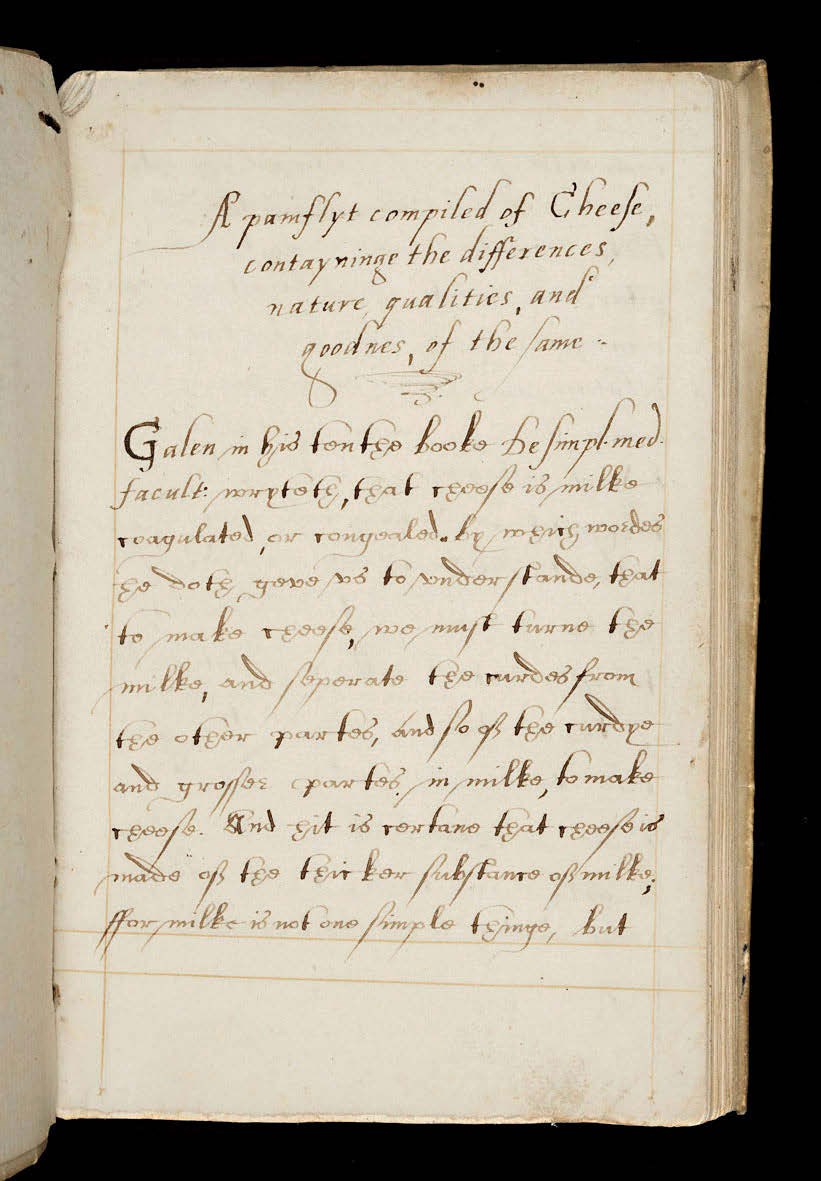 A pamflyt compiled of Cheese,
contayninge the differences,
nature, qualities, and
goodnes, of the same
Galen in his tenthe booke de simpl. med.
facult: wryteth, that cheese is milke
coagulated, or congealed. by which wordes
he doth geve vs to vnderstande, that
to make cheese, we must turne the
milke, and seperate the curdes from
the other partes, and so of the curdye
and grosser partes in milke, to make
cheese. And hit is certane that cheese is
made of the thicker substance of milke;
ffor milke is not one simple thinge, but